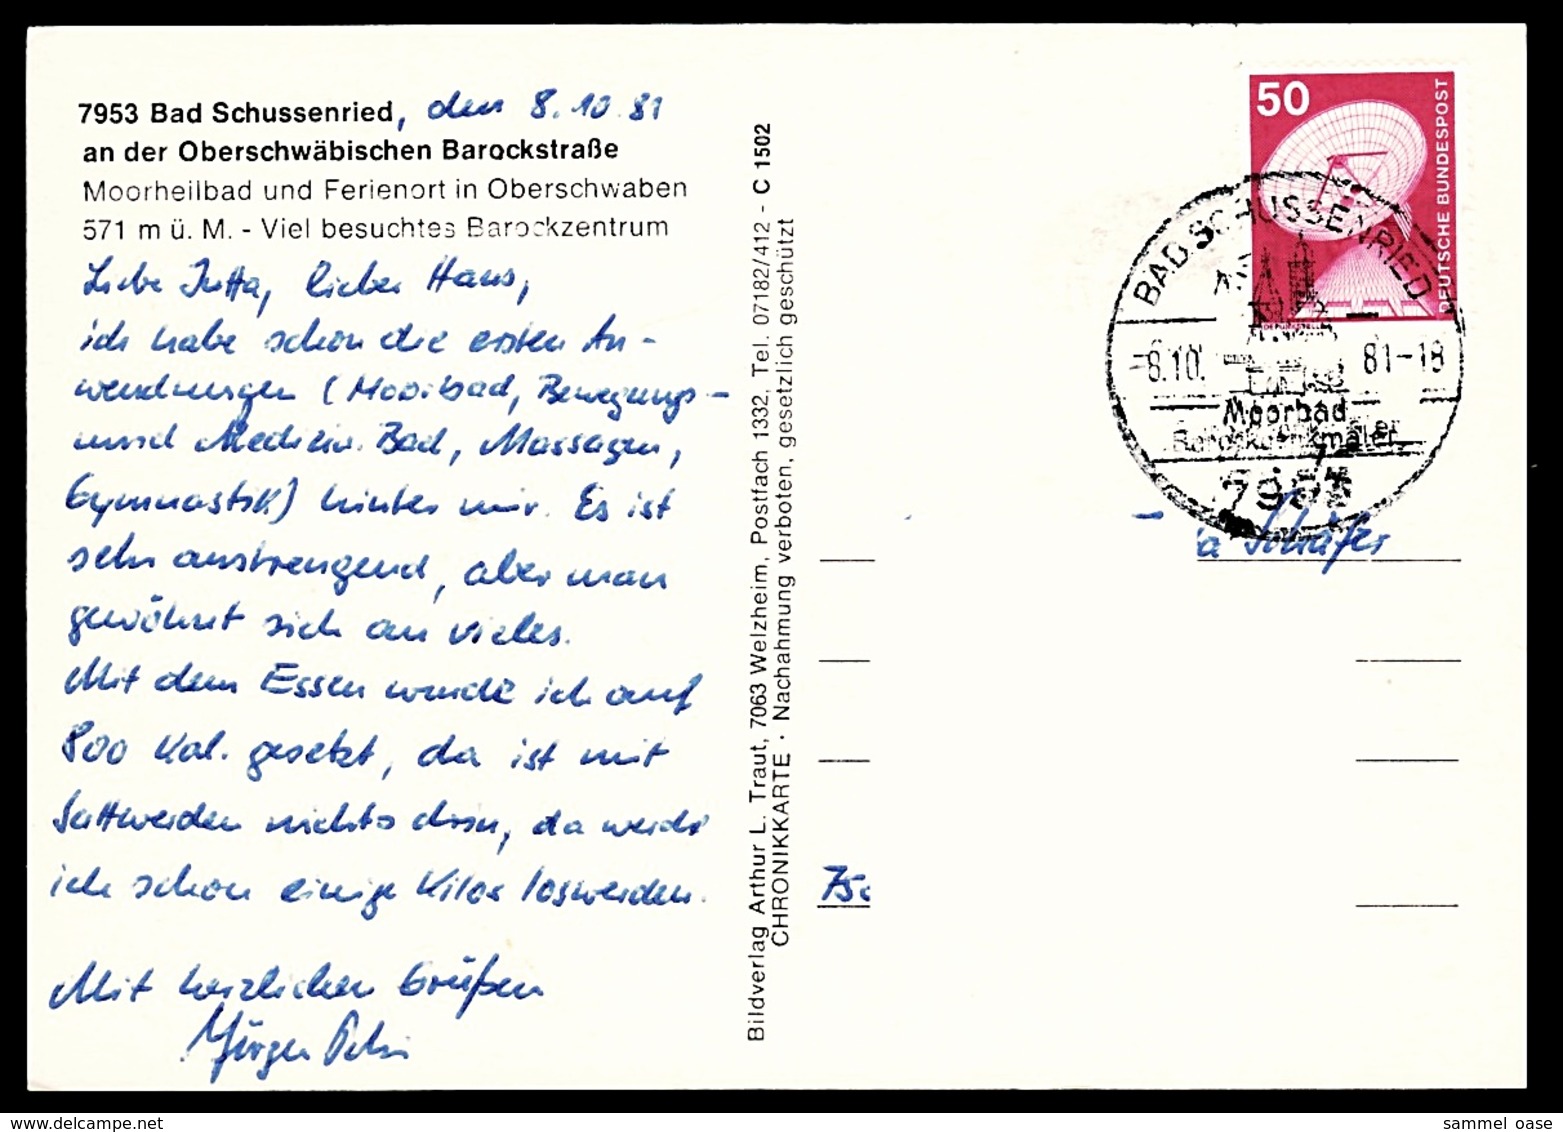 7953 Bad Schussenried, den 8.10.81
an der Oberschwäbischen Barockstraße
Moorheilbad und Ferienort in Oberschwaben
571 m ü. M. - Viel besuchtes Barockzentrum
Liebe Jutta, lieber Hans,
ich habe schon die ersten An-
wendungen (Moorbad, Bewegungs-
und Medizin. Bad, Massagen,
Gymnastik) hinter mir. Es ist
sehr anstrengend, aber man
gewöhnt sich an vieles.
Mit dem Essen wurde ich auf
800 Kal. gesetzt, da ist mit
Sattwerden nichts drin, da werde
ich schon einige Kilos loswerden.
Mit herzlichen Grüßen
Jürgen
Bildverlag Arthur L. Traut, 7063 Welzheim, Postfach 1332, Tel. 07182/412 - C 1502
CHRONIKKARTE · Nachahmung verboten, gesetzlich geschützt
50
DEUTSCHE BUNDESPOST
BAD SCHUSSENRIED
-8.10. 81-18
Moorbad
Barockdenkmäler
7953
Schäfer
75
sammel oase